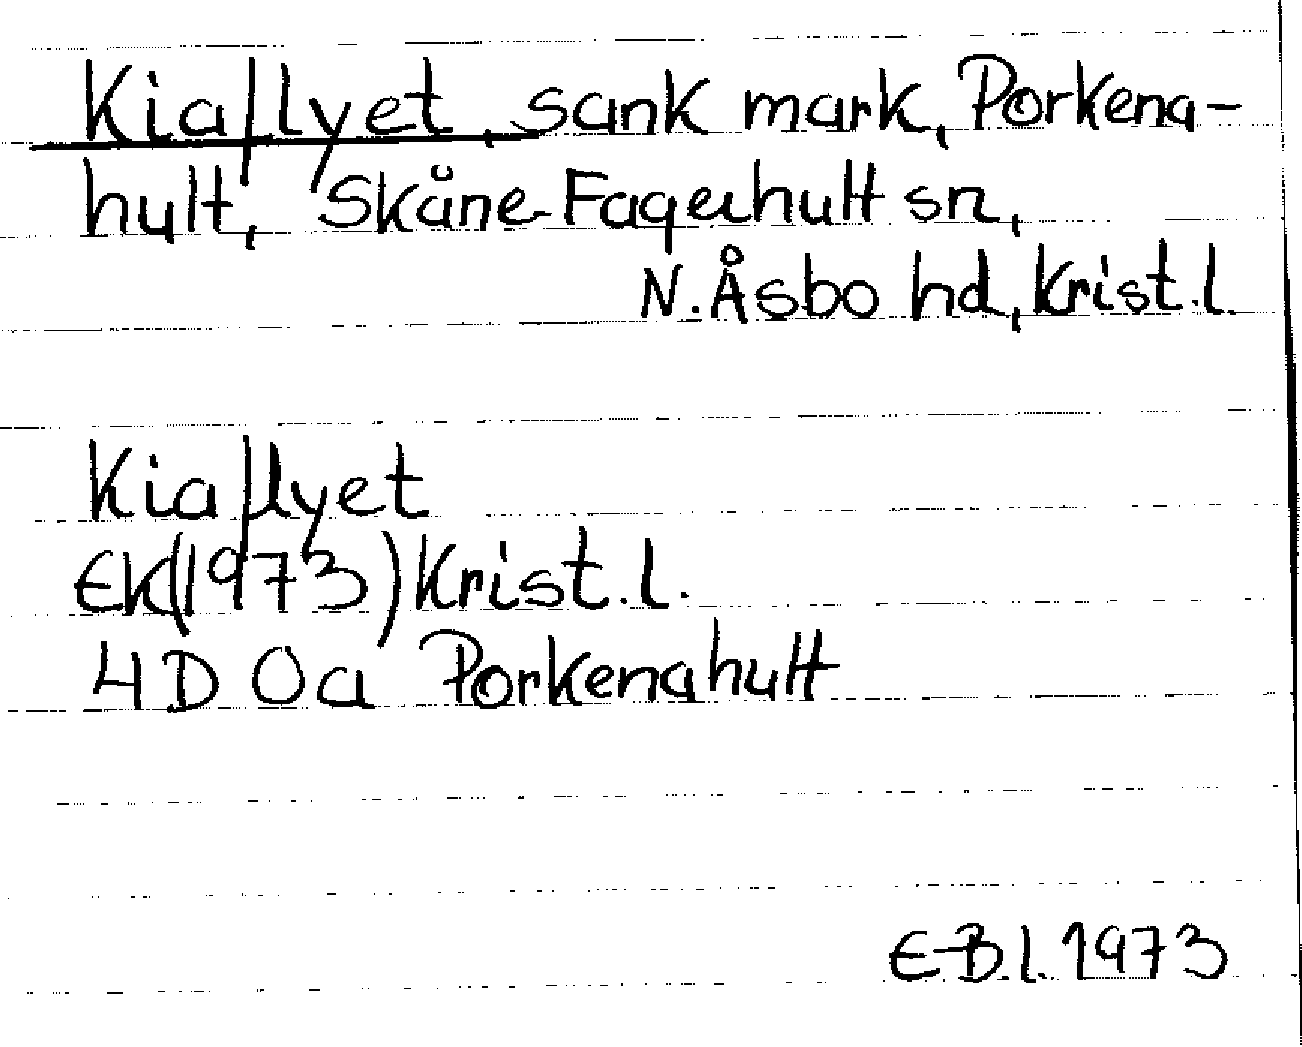 Kiaflyet, sank mark, Porkena-
hult, Skåne-Fagerhult sn,
N. Åsbo hd, Krist. l.
Kiaflyet
EK(1973) Krist. l.
4D 0a Porkenahult
E-B l. 1973